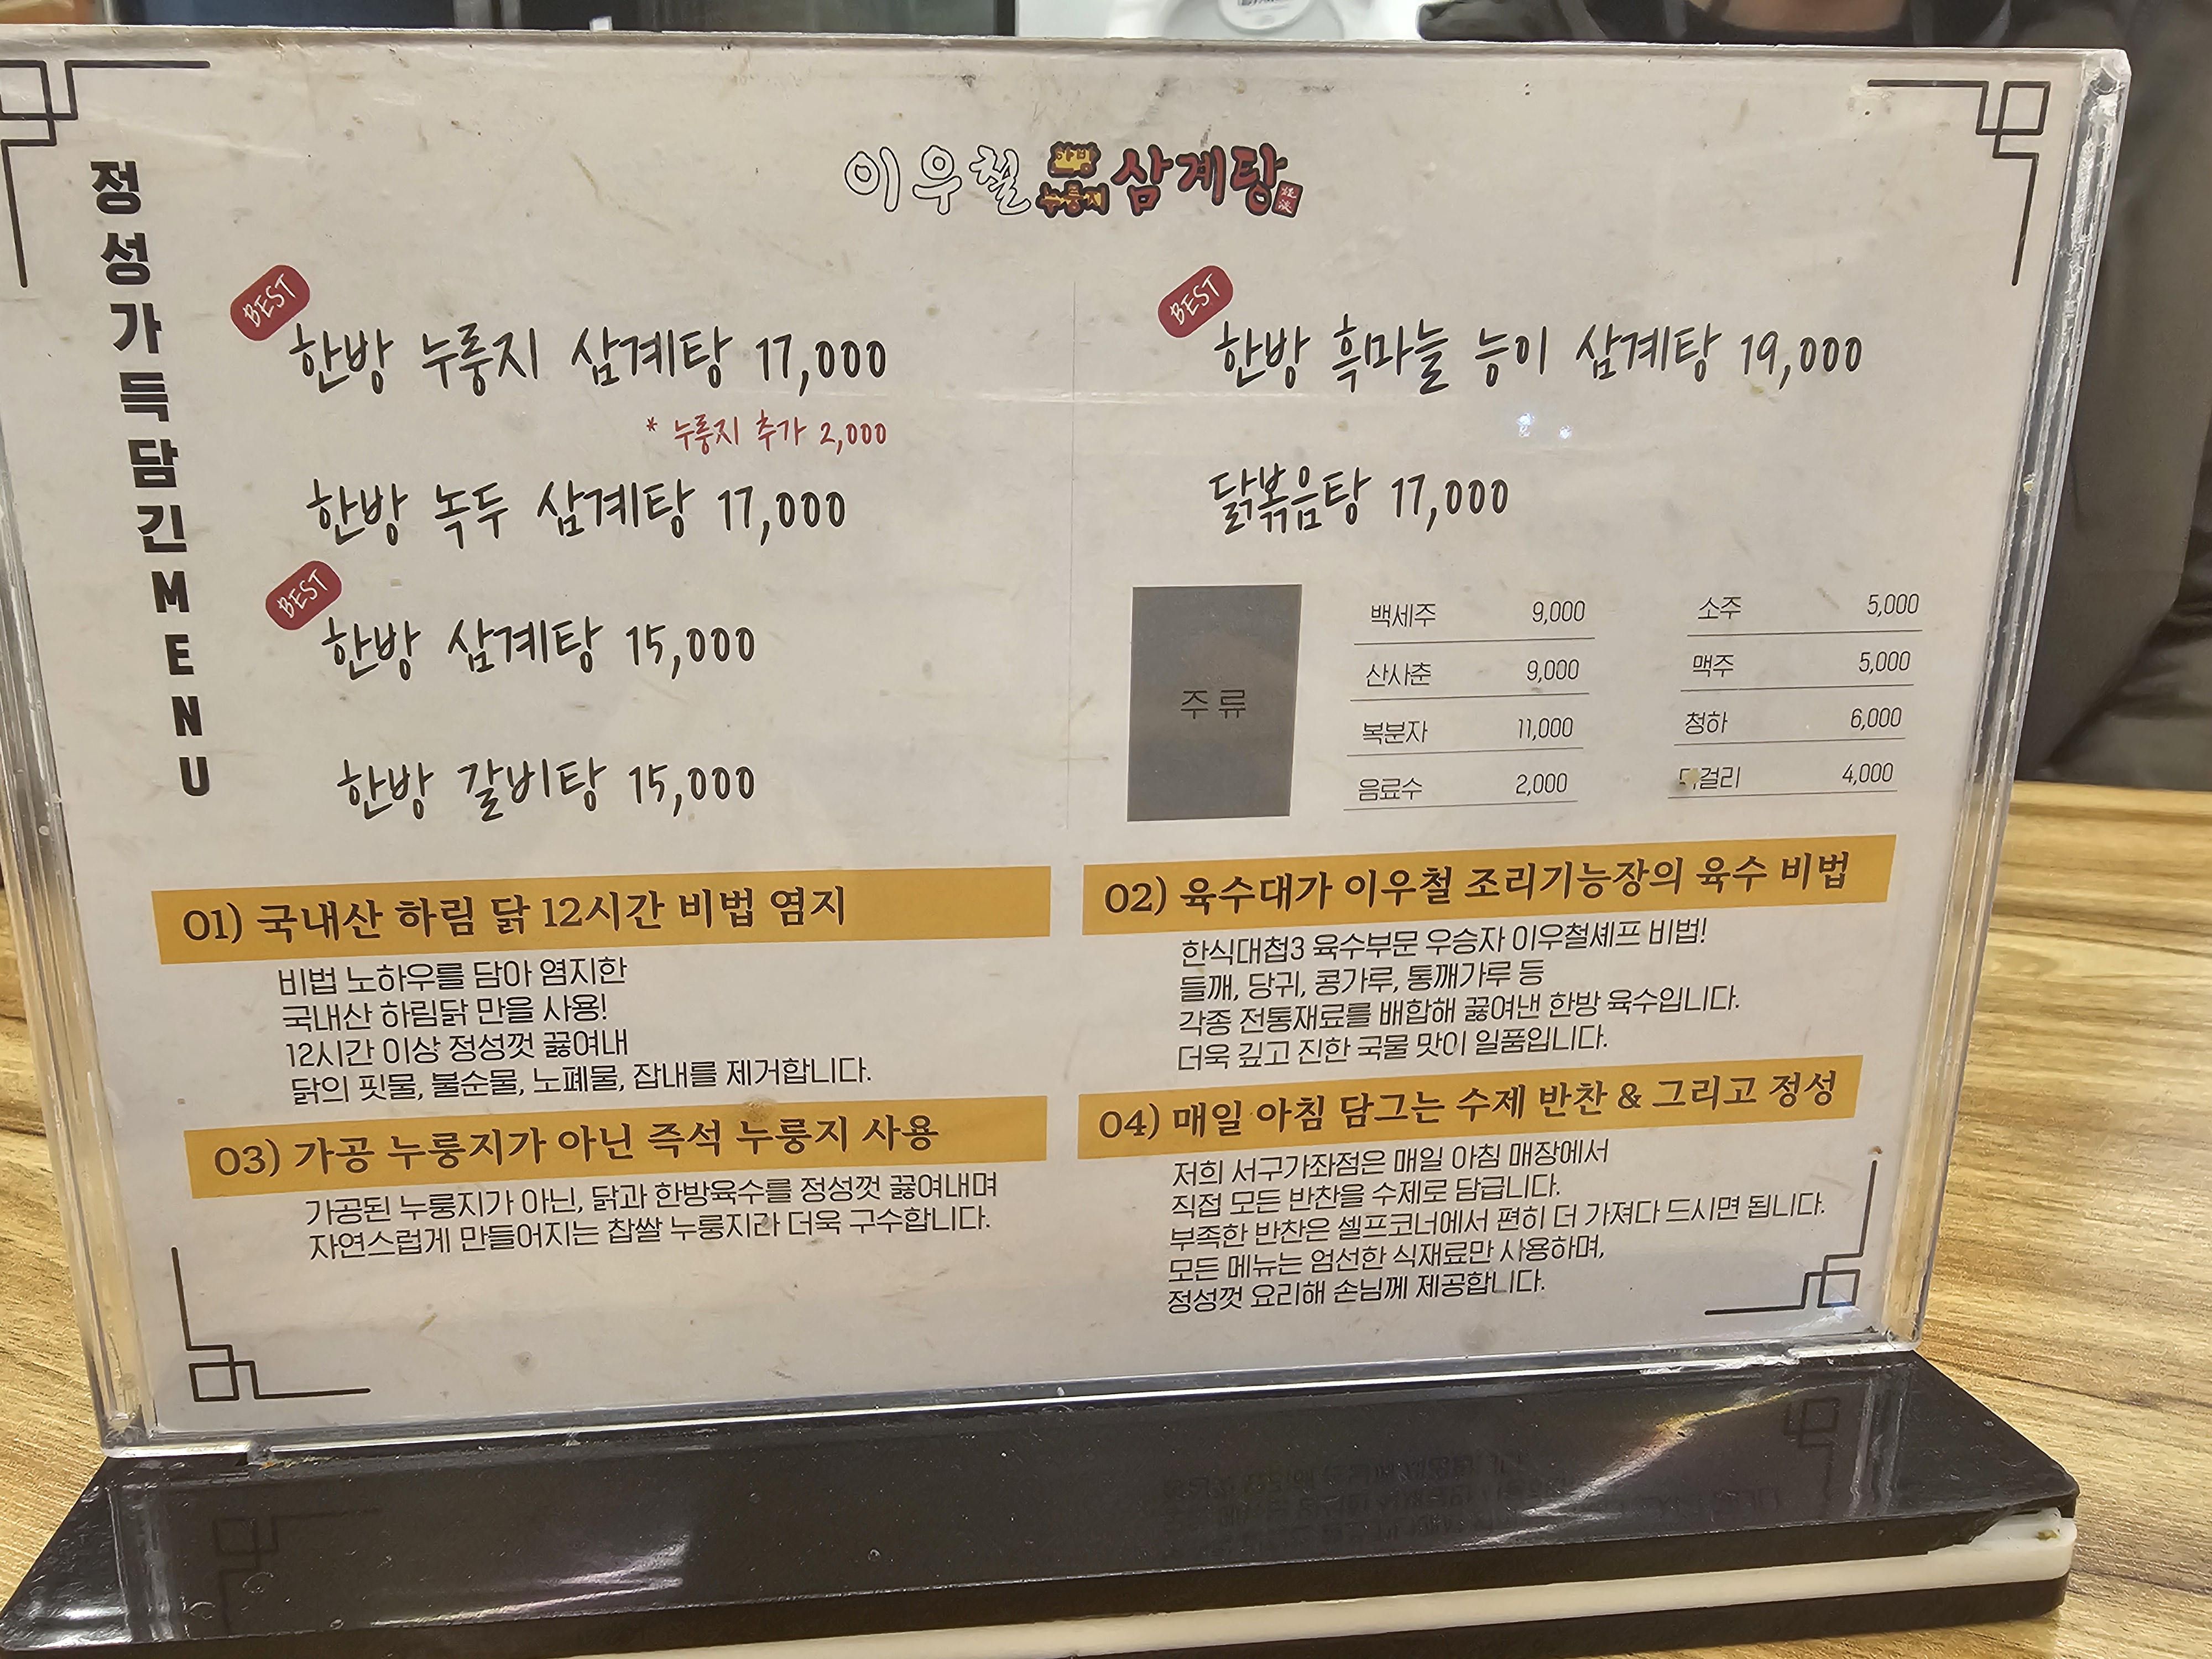 정성가득담긴MENU
이우철 한방 누룽지 삼계탕
BEST
한방 누룽지 삼계탕 17,000
* 누룽지 추가 2,000
한방 녹두 삼계탕 17,000
BEST
한방 삼계탕 15,000
한방 갈비탕 15,000
BEST
한방 흑마늘 능이 삼계탕 19,000
닭볶음탕 17,000
주류
백세주 9,000
산사춘 9,000
복분자 11,000
음료수 2,000
소주 5,000
맥주 5,000
청하 6,000
막걸리 4,000
01) 국내산 하림 닭 12시간 비법 염지
비법 노하우를 담아 염지한
국내산 하림닭 만을 사용!
12시간 이상 정성껏 끓여내
닭의 핏물, 불순물, 노폐물, 잡내를 제거합니다.
02) 육수대가 이우철 조리기능장의 육수 비법
한식대첩3 육수부문 우승자 이우철셰프 비법!
들깨, 당귀, 콩가루, 통깨가루 등
각종 전통재료를 배합해 끓여낸 한방 육수입니다.
더욱 깊고 진한 국물 맛이 일품입니다.
03) 가공 누룽지가 아닌 즉석 누룽지 사용
가공된 누룽지가 아닌, 닭과 한방육수를 정성껏 끓여내며
자연스럽게 만들어지는 찹쌀 누룽지라 더욱 구수합니다.
04) 매일 아침 담그는 수제 반찬 & 그리고 정성
저희 서구가좌점은 매일 아침 매장에서
직접 모든 반찬을 수제로 담급니다.
부족한 반찬은 셀프코너에서 편히 더 가져다 드시면 됩니다.
모든 메뉴는 엄선한 식재료만 사용하며,
정성껏 요리해 손님께 제공합니다.